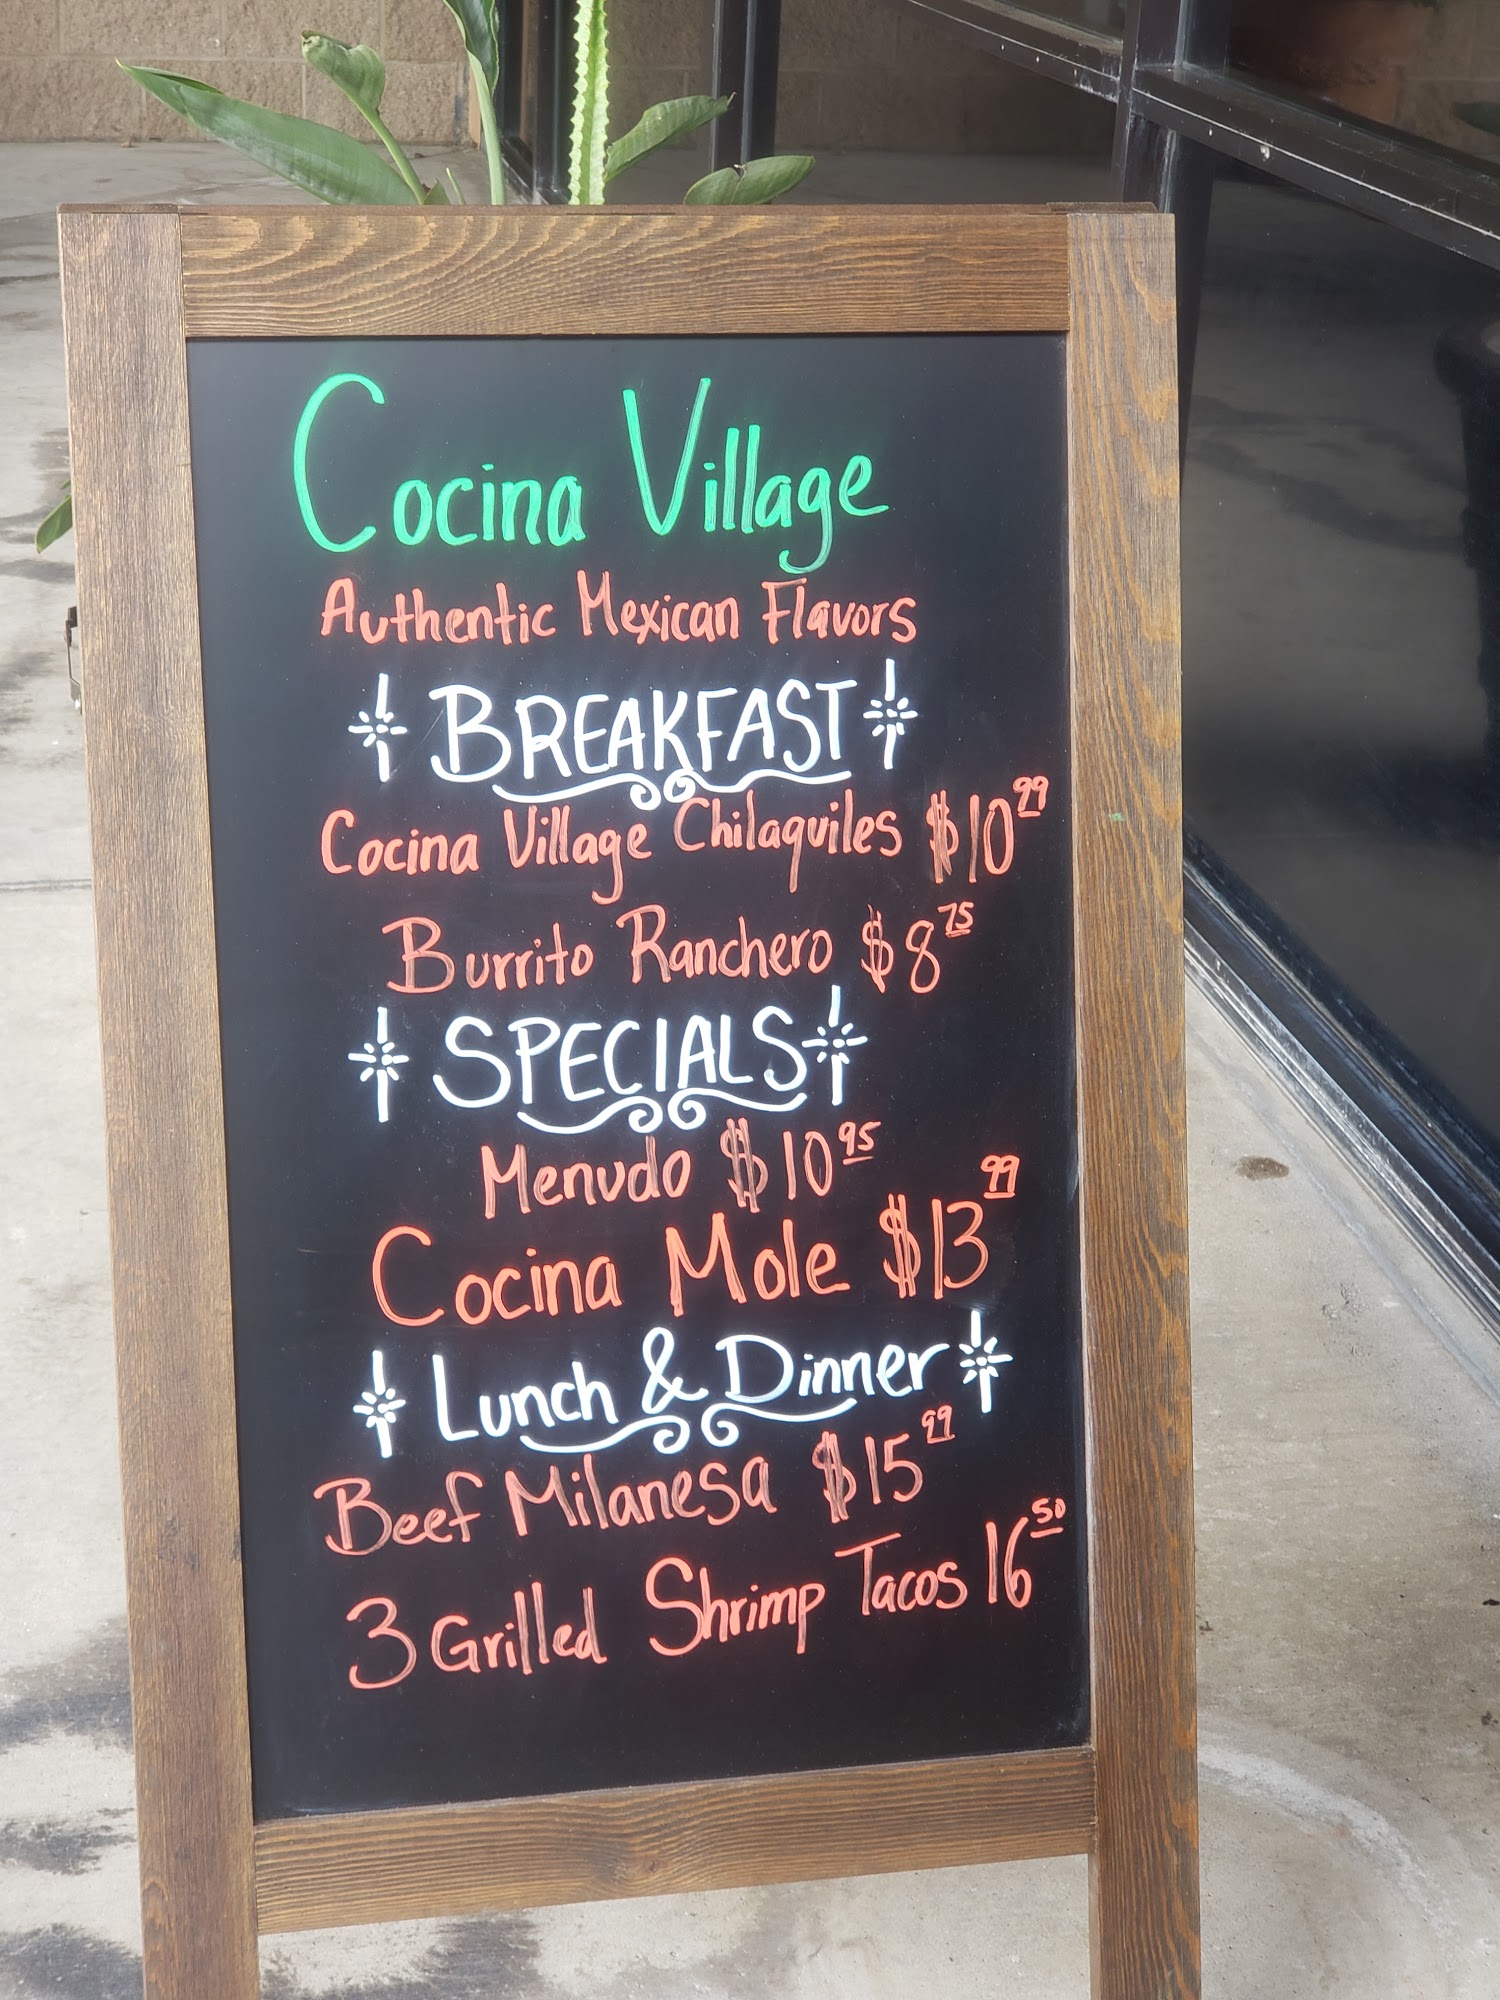 Cocina Village
Authentic Mexican Flavors
BREAKFAST
Cocina Village Chilaquiles $10 99
Burrito Ranchero $8 75
SPECIALS
Menudo $10 95
Cocina Mole $13 99
Lunch & Dinner
Beef Milanesa $15 99
3 Grilled Shrimp Tacos 16 50